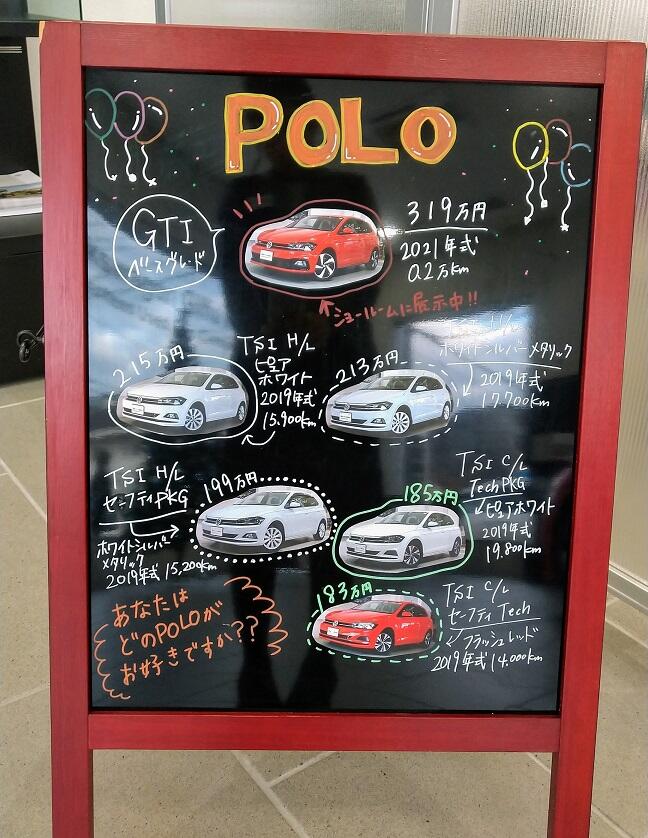 POLO
GTI
ベースグレード
319万円
2021年式
0.2万km
ショールームに展示中!!
215万円
TSI H/L
ピュア
ホワイト
2019年式
15.900km
213万円
TSI H/L
ホワイトシルバーメタリック
2019年式
17.700km
TSI H/L
セーフティPKG
199万円
ホワイトシルバー
メタリック
2019年式 15,200km
185万円
TSI C/L
Tech PKG
ピュアホワイト
2019年式
19.800km
183万円
TSI C/L
セーフティ Tech
フラッシュレッド
2019年式 14.000km
あなたは
どのPOLOが
お好きですか??